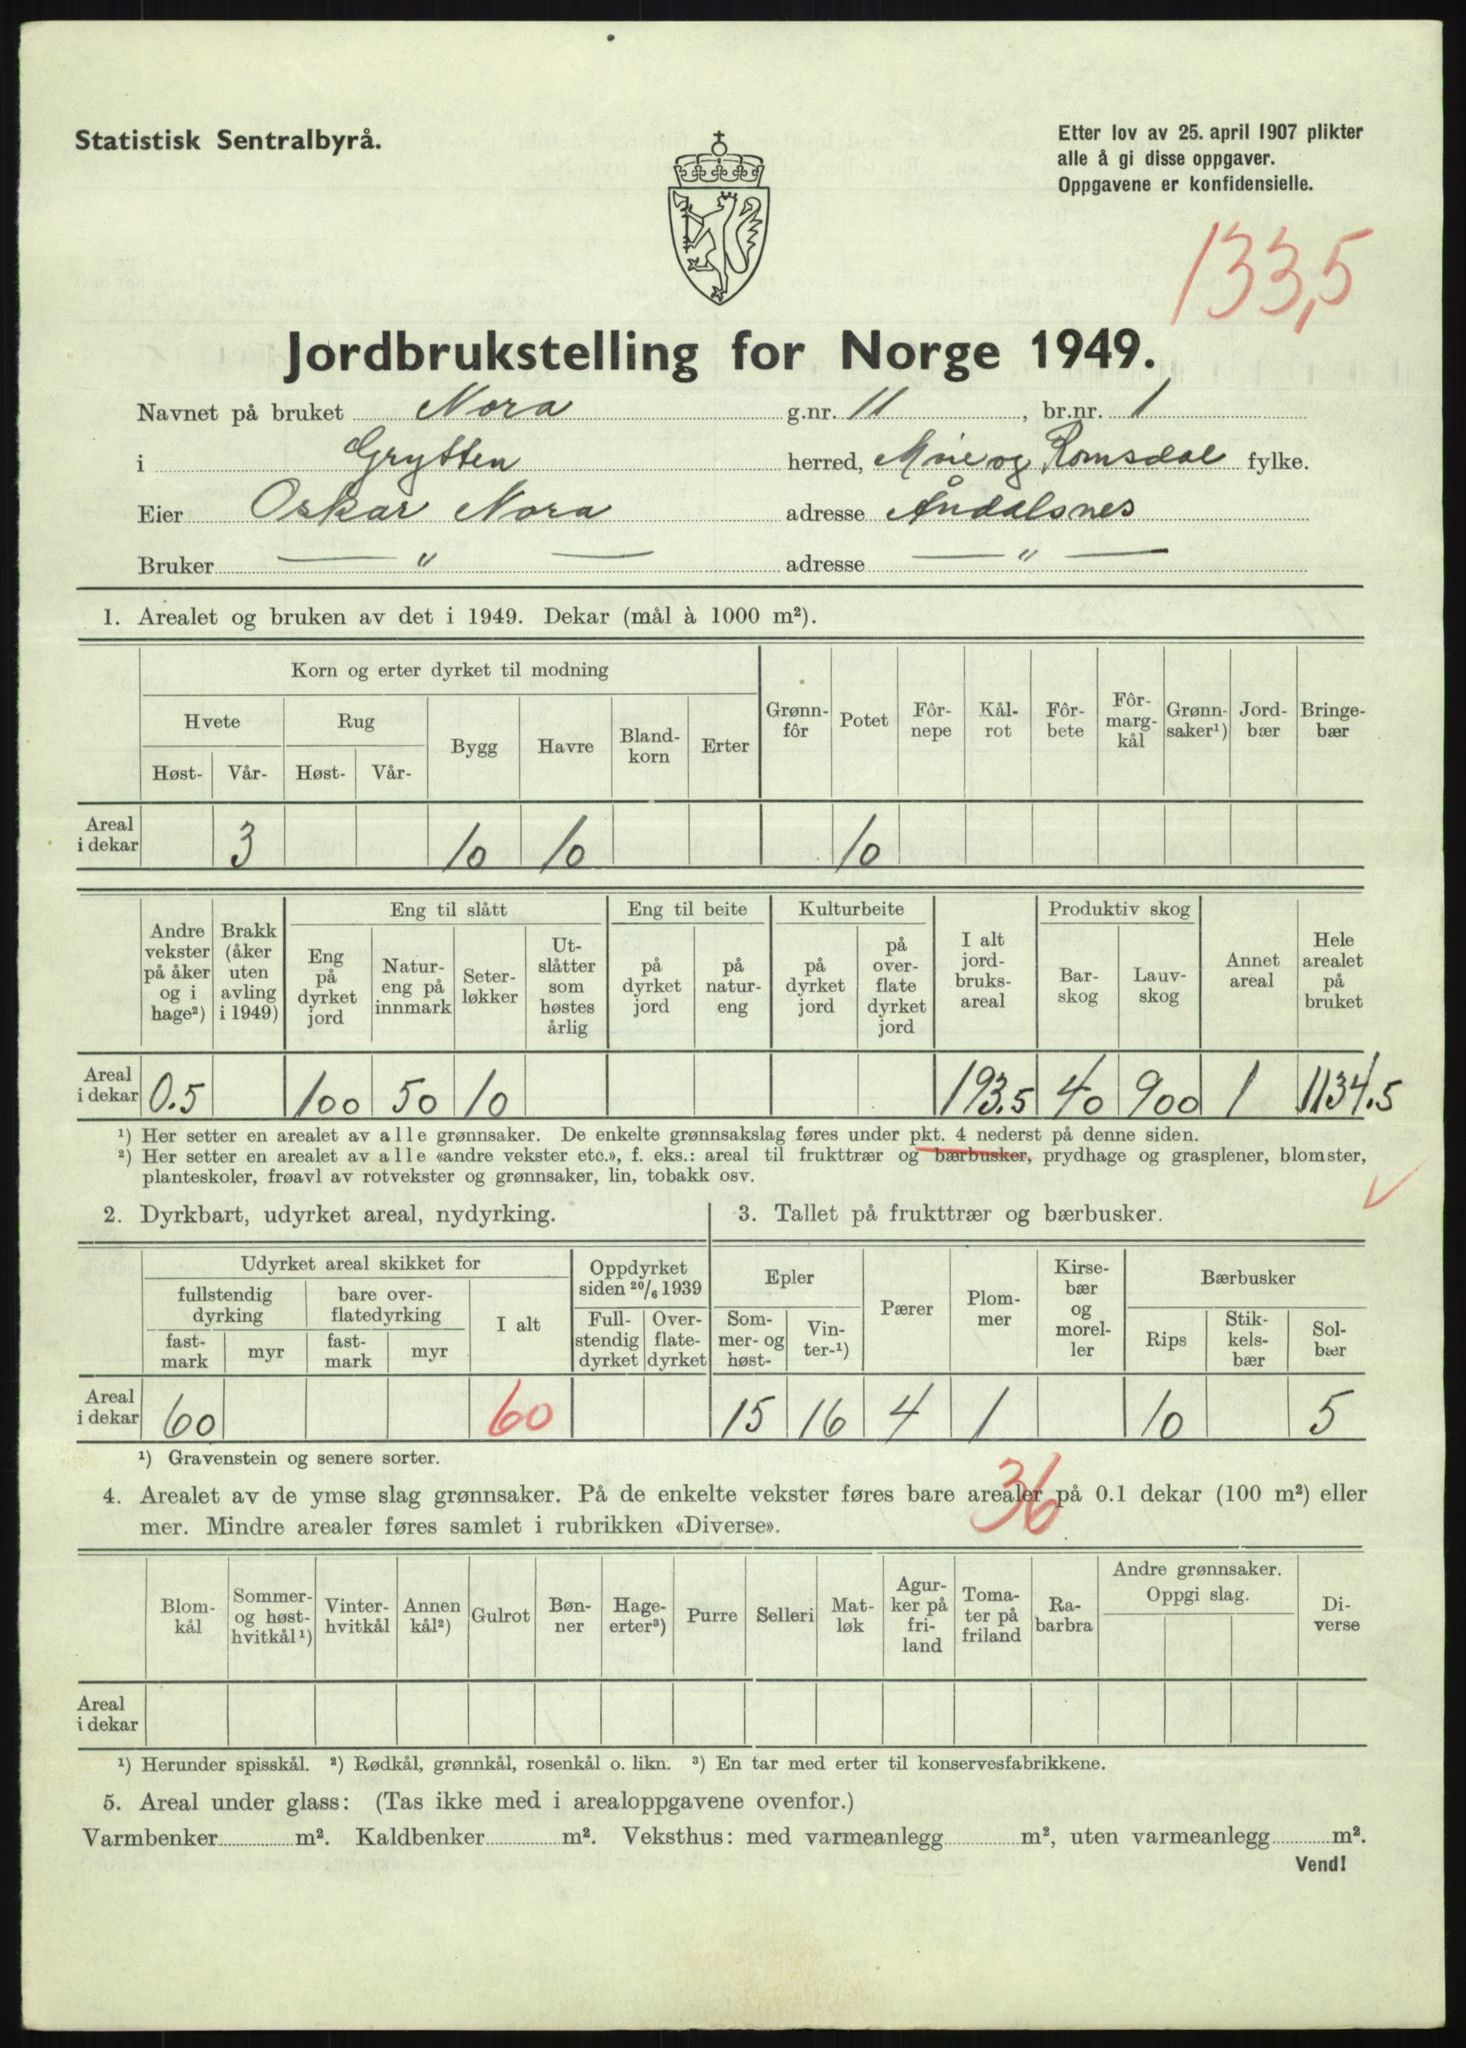 Statistisk Sentralbyrå.
Etter lov av 25. april 1907 plikter
alle å gi disse oppgaver.
Oppgavene er konfidensielle.
133,5
Jordbrukstelling for Norge 1949.
Navnet på bruket Nora g.nr. 11, br.nr. 1
i Grytten herred, Møre og Romsdal fylke.
Eier Oskar Nora adresse Åndalsnes
Bruker — " — adresse — " —
1. Arealet og bruken av det i 1949. Dekar (mål à 1000 m²).
Korn og erter dyrket til modning
Hvete Rug Bygg Havre Bland-korn Erter Grønn-fôr Potet Fôr-nepe Kål-rot Fôr-bete Fôr-marg-kål Grønn-saker¹) Jord-bær Bringe-bær
Høst- Vår- Høst- Vår-
Areal i dekar 3 10 10 10
Andre vekster på åker og i hage²) Brakk (åker uten avling i 1949) Eng til slått Eng til beite Kulturbeite I alt jord-bruks-areal Produktiv skog Annet areal Hele arealet på bruket
Eng på dyrket jord Natur-eng på innmark Seter-løkker Ut-slåtter som høstes årlig på dyrket jord på natur-eng på dyrket jord på over-flate dyrket jord Bar-skog Lauv-skog
Areal i dekar 0.5 100 50 10 193.5 40 900 1 1134.5
¹) Her setter en arealet av alle grønnsaker. De enkelte grønnsakslag føres under pkt. 4 nederst på denne siden.
²) Her setter en arealet av alle «andre vekster etc.», f. eks.: areal til frukttrær og bærbusker, prydhage og grasplener, blomster,
planteskoler, frøavl av rotvekster og grønnsaker, lin, tobakk osv.
2. Dyrkbart, udyrket areal, nydyrking.
Udyrket areal skikket for Oppdyrket siden 20/6 1939
fullstendig dyrking bare over-flatedyrking I alt Full-stendig dyrket Over-flate-dyrket
fast-mark myr fast-mark myr
Areal i dekar 60 60
3. Tallet på frukttrær og bærbusker.
Epler Pærer Plom-mer Kirse-bær og morel-ler Bærbusker
Som-mer- og høst- Vin-ter-¹) Rips Stik-kels-bær Sol-bær
15 16 4 1 10 5
¹) Gravenstein og senere sorter.
36
4. Arealet av de ymse slag grønnsaker. På de enkelte vekster føres bare arealer på 0.1 dekar (100 m²) eller
mer. Mindre arealer føres samlet i rubrikken «Diverse».
Blom-kål Sommer- og høst-hvitkål¹) Vinter-hvitkål Annen kål²) Gulrot Bøn-ner Hage-erter³) Purre Selleri Mat-løk Agur-ker på fri-land Toma-ter på friland Ra-barbra Andre grønnsaker. Oppgi slag. Di-verse
Areal i dekar
¹) Herunder spisskål. ²) Rødkål, grønnkål, rosenkål o. likn. ³) En tar med erter til konservesfabrikkene.
5. Areal under glass: (Tas ikke med i arealoppgavene ovenfor.)
Varmbenker m². Kaldbenker m². Veksthus: med varmeanlegg m², uten varmeanlegg m².
Vend!